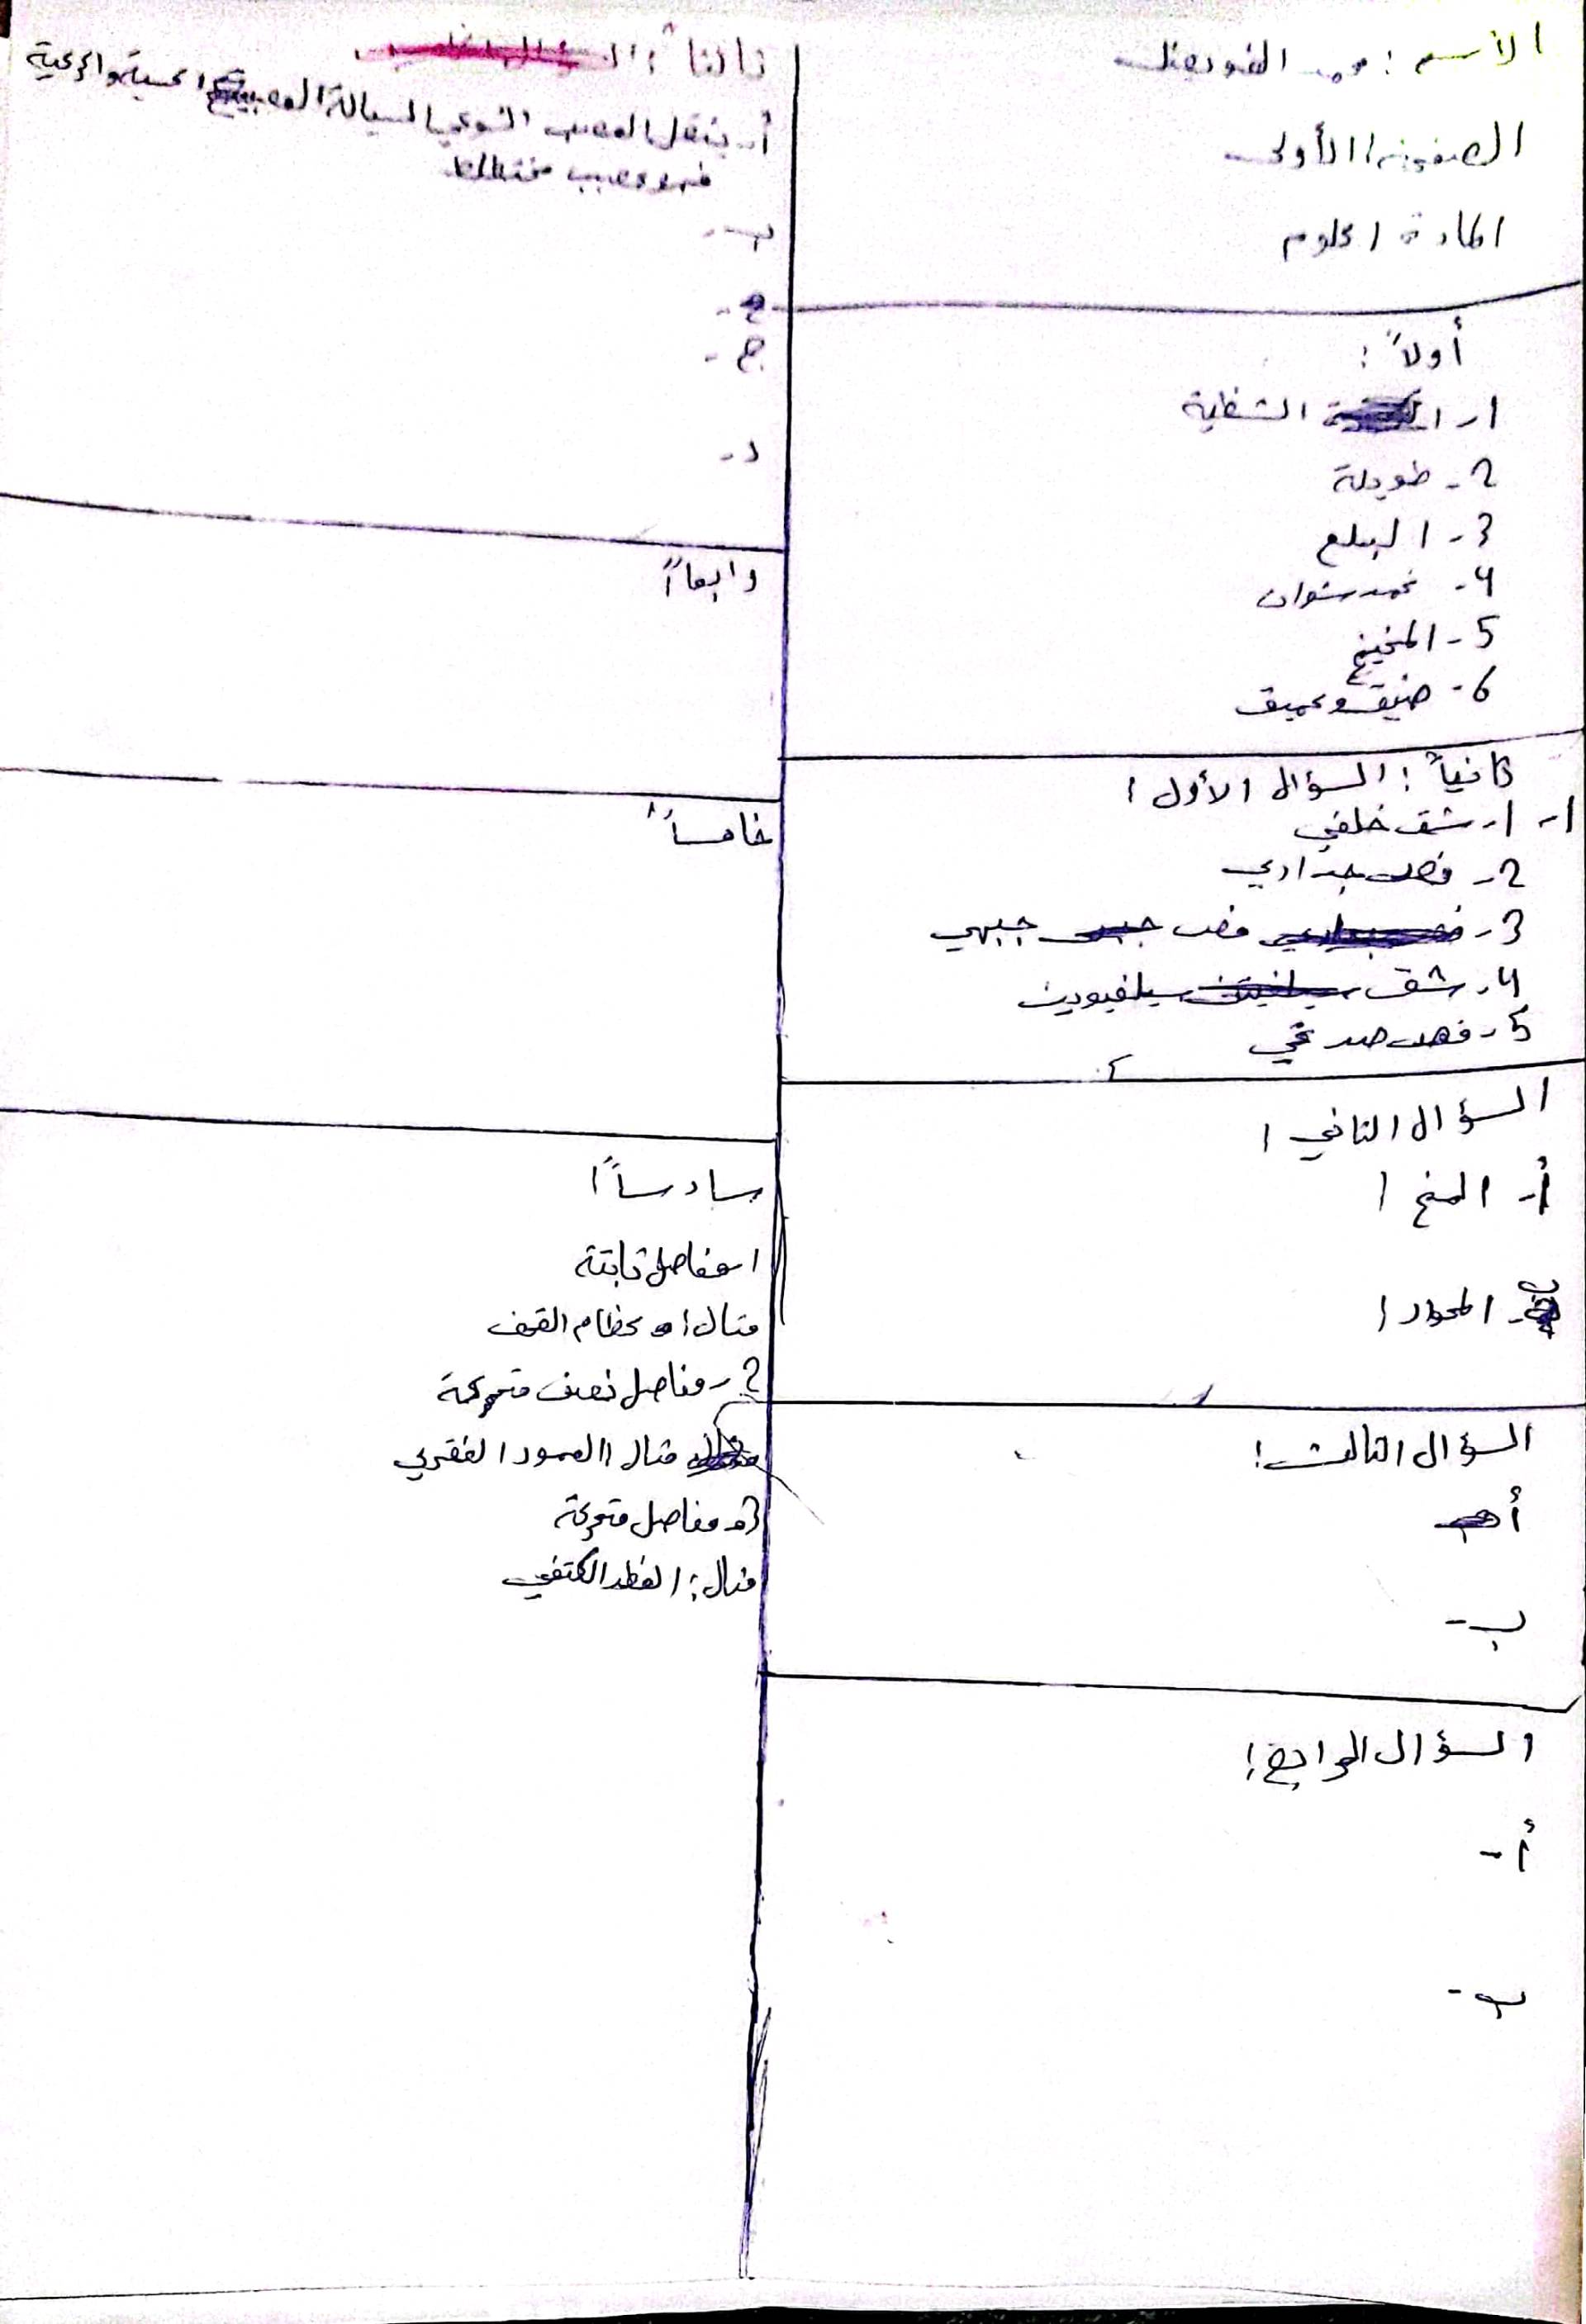 الاسم : محمد
الصفحة الأولى
المادة العلوم
أولاً :
1- الشظية
2- طويلة
3- البلع
4- نخمد سنوات
5- المخيخ
6- ضيق وعميق
ثانياً : السؤال الأول :
1- 1- شق خلفي
2- فص جداري
3- فص جبهي
4- شق سيلفيوس
5- فص صدغي
السؤال الثاني :
أ- المخ :
ب- المحوار :
السؤال الثالث :
أ-
ب-
السؤال الرابع :
أ-
ب-
ثالثاً :
أ- ينقل العصب الشوكي السيالة العصبية الحسية والحركية
فهو عصب مختلط
ب-
ج-
د-
رابعاً
خامساً
سادساً :
1- مفاصل ثابتة
مثال : عظام القحف
2- مفاصل نصف متحركة
مثال : العمود الفقري
3- مفاصل متحركة
مثال : الكتفي